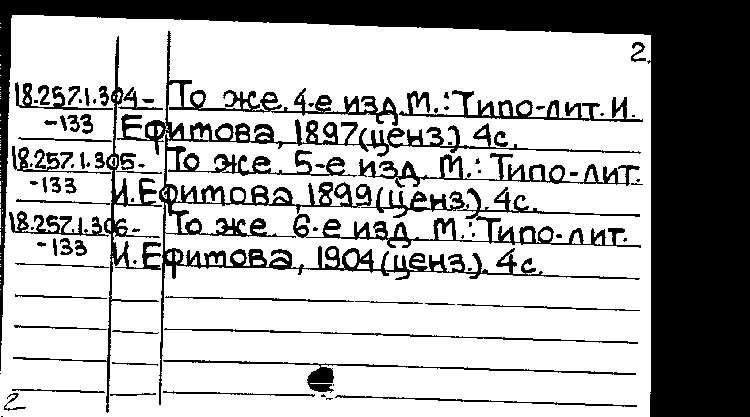 2.
18.257.1.304- То же. 4-е изд. М.: Типо-лит. И.
-133 Ефимова, 1897 (ценз.). 4с.
18.257.1.305- То же. 5-е изд. М.: Типо-лит.
-133 И. Ефимова, 1899 (ценз.). 4с.
18.257.1.306- То же. 6-е изд. М.: Типо-лит.
-133 И. Ефимова, 1904 (ценз.). 4с.
2